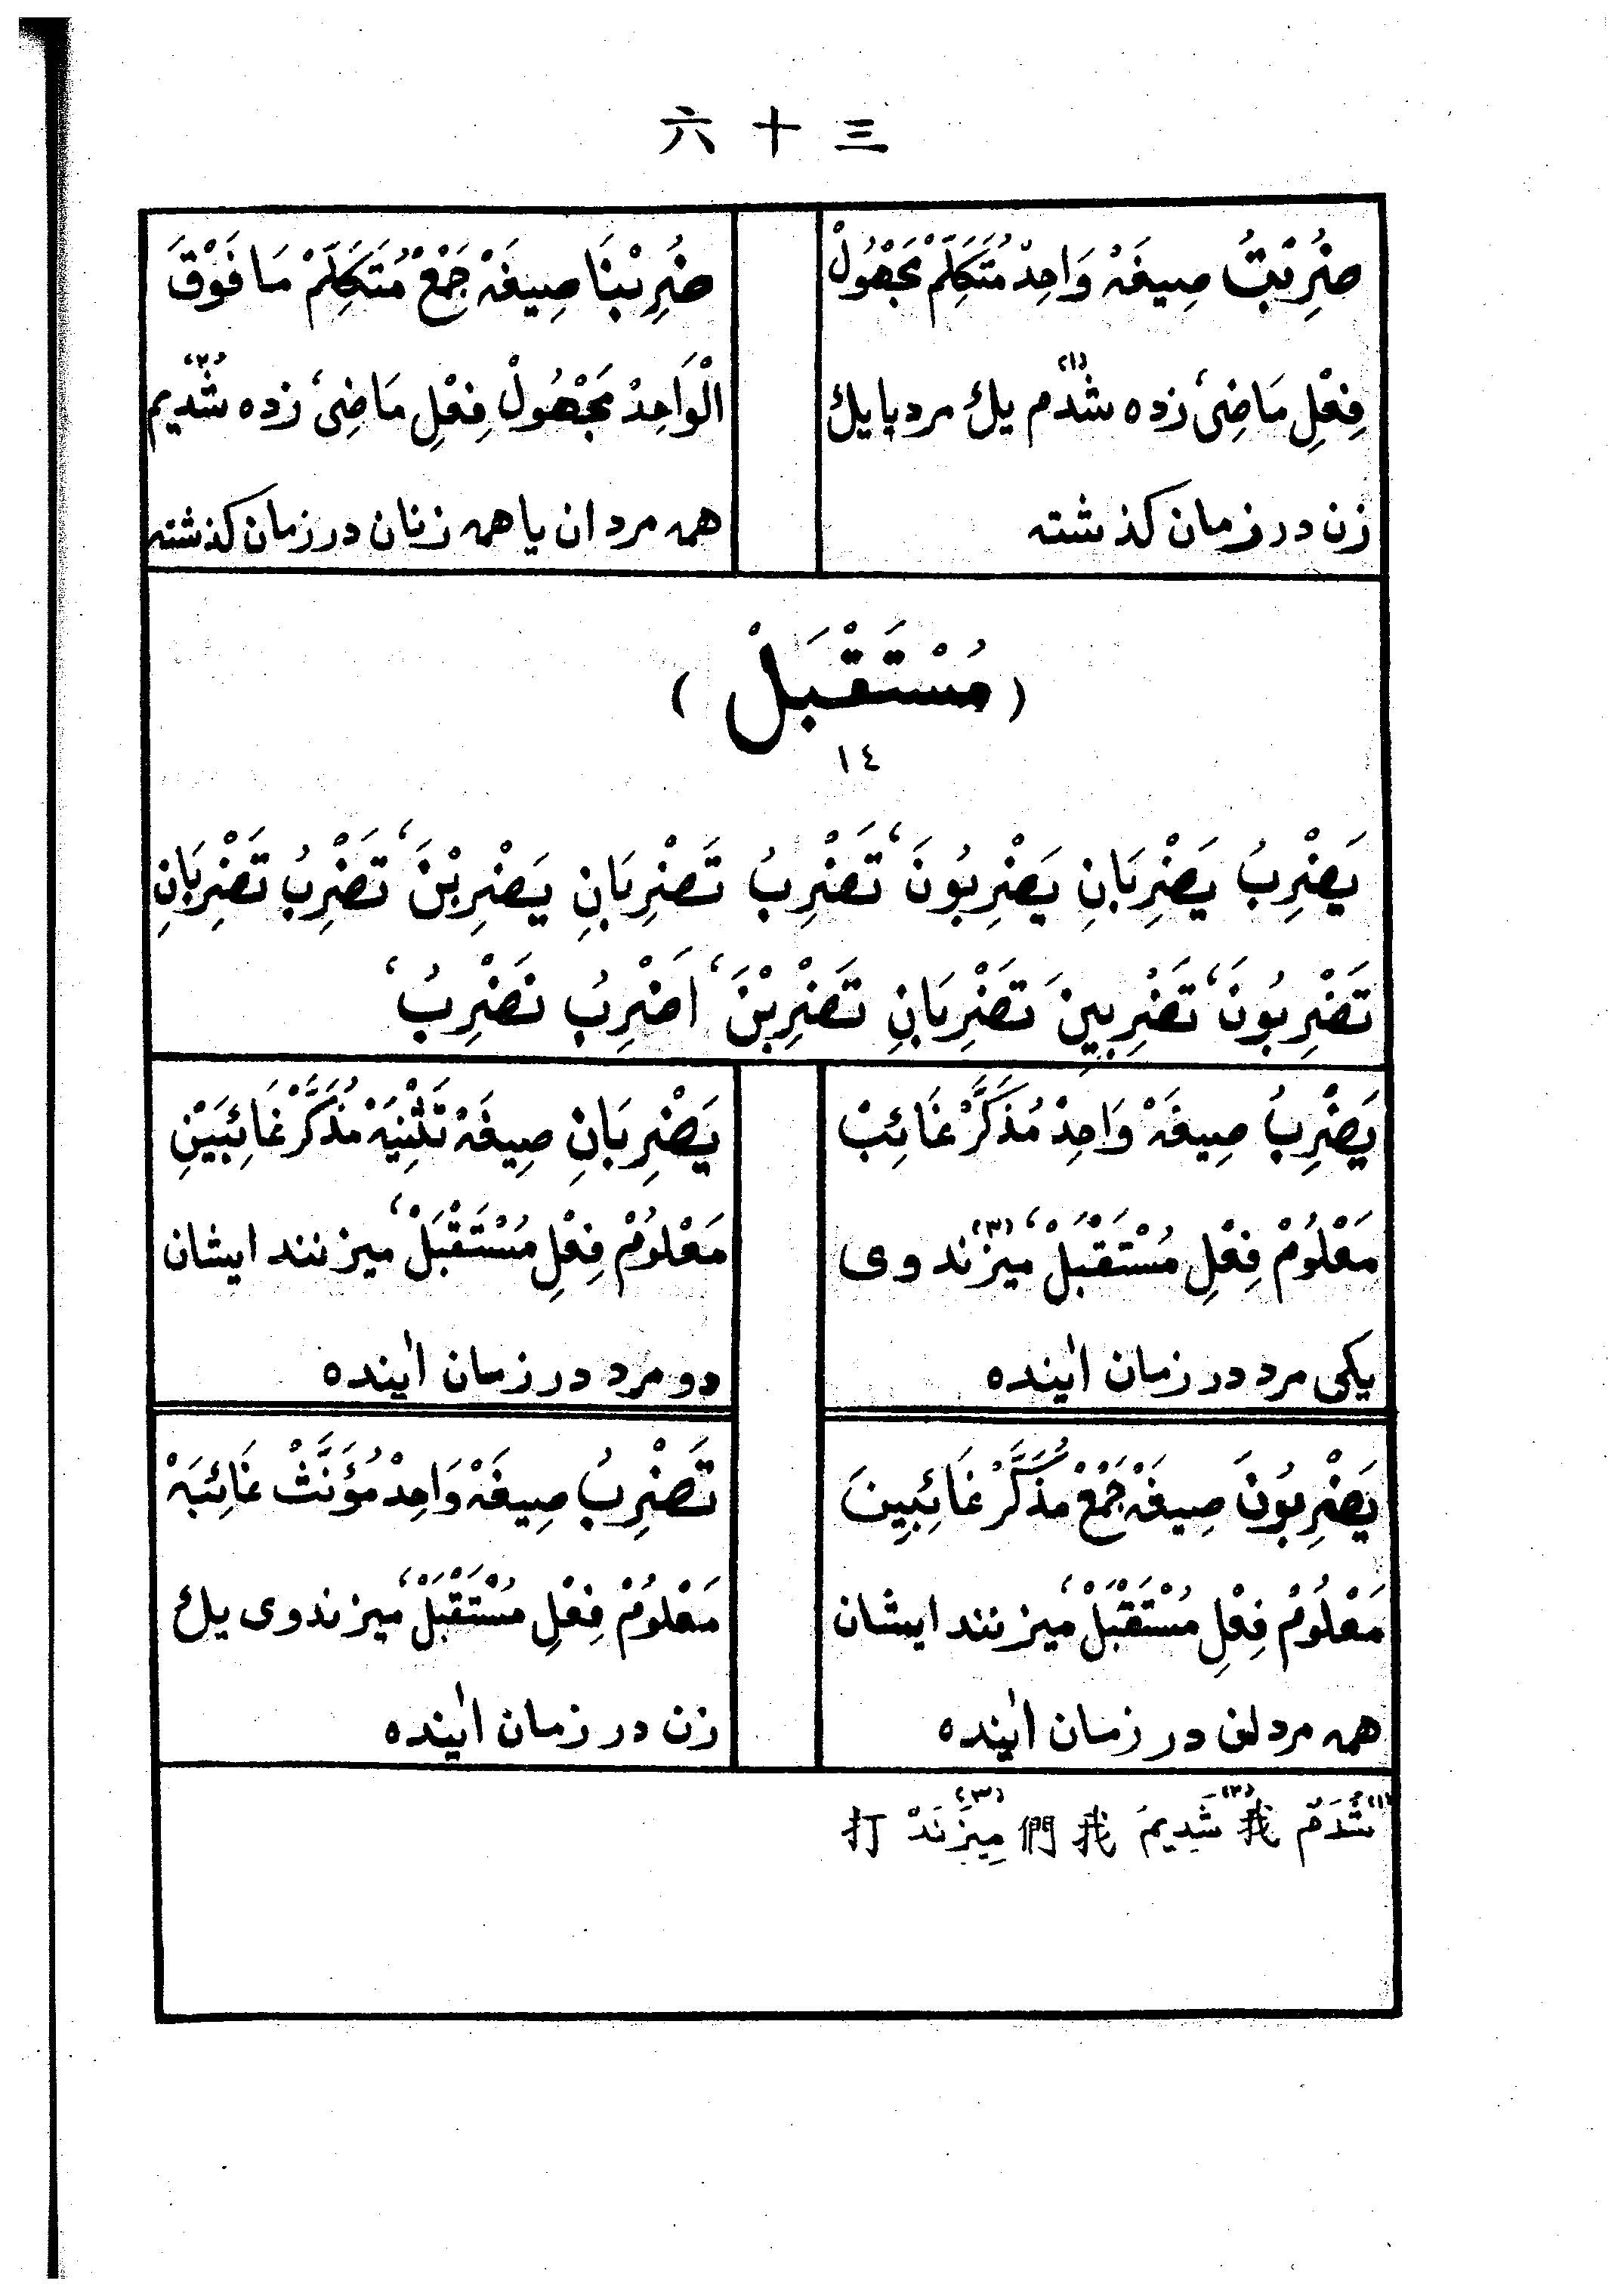 三十六
ضُرِبْتُ صِيغَهْ وَاحِدْ مُتَكَلِّمْ مَجْهُولْ
فِعْلِ مَاضِیْ، زده شدم (۱) يك مرد يا يك
زن در زمان كذشته
ضُرِبْنَا صِيغَهْ جَمْعْ مُتَكَلِّمْ مَا فَوْقَ
الْوَاحِدْ مَجْهُولْ فِعْلِ مَاضِیْ، زده شُدِيم (۲)
همه مردان يا همه زنان در زمان كذشته
(مُسْتَقْبَلْ)
١٤
يَضْرِبُ يَضْرِبَانِ يَضْرِبُونَ، تَضْرِبُ تَضْرِبَانِ يَضْرِبْنَ، تَضْرِبُ تَضْرِبَانِ
تَضْرِبُونَ، تَضْرِبِينَ تَضْرِبَانِ تَضْرِبْنَ، اَضْرِبُ نَضْرِبُ،
يَضْرِبُ صِيغَهْ وَاحِدْ مُذَكَّرْ غَائِبْ
مَعْلُومْ فِعْلِ مُسْتَقْبَلْ، ميزند (۳) وى
يكى مرد در زمان اٰينده
يَضْرِبَانِ صِيغَهْ تَثْنِيَهْ مُذَكَّرْ غَائِبَيْنِ
مَعْلُومْ فِعْلِ مُسْتَقْبَلْ، ميزنند ايشان
دو مرد در زمان اٰينده
يَضْرِبُونَ صِيغَهْ جَمْعْ مُذَكَّرْ غَائِبِينَ
مَعْلُومْ فِعْلِ مُسْتَقْبَلْ، ميزنند ايشان
همه مردان در زمان اٰينده
تَضْرِبُ صِيغَهْ وَاحِدْ مُؤَنَّثْ غَائِبَهْ
مَعْلُومْ فِعْلِ مُسْتَقْبَلْ، ميزند وى يك
زن در زمان اٰينده
(۱) شُدَمْ 我 (۲) شُدِيمْ 我們 (۳) مِيزَنَدْ 打